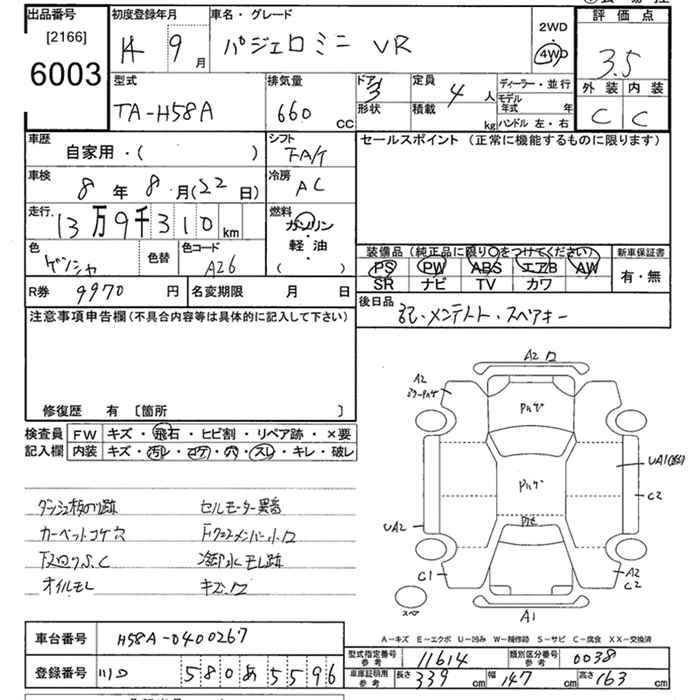 出品番号
[2166]
6003
初度登録年月
14 9 月
車名・グレード
パジェロミニ VR
2WD
4WD
評価点
3.5
外装 内装
C C
型式
TA-H58A
排気量
660 CC
ドア
3
形状
定員
4 人
積載
kg
ディーラー・並行
モデル年式 年
ハンドル 左・右
車歴
自家用・( )
シフト
FA/T
セールスポイント (正常に機能するものに限ります)
車検
8 年 8 月 (22 日)
冷房
AC
走行
13 万 9 千 310 km
燃料
ガソリン
軽油
( )
色
ゲンシャ
色替
色コード
A26
装備品 (純正品に限り○をつけてください)
PS PW ABS エアB AW
SR ナビ TV カワ
新車保証書
有・無
R券 9970 円
名変期限 月 日
後日品
記・メンテノート・スペアキー
注意事項申告欄 (不具合内容等は具体的に記入して下さい)
修復歴 有 [箇所 ]
検査員
記入欄
FW キズ・飛石・ヒビ割・リペア跡・×要
内装 キズ・汚レ・コゲ・穴・スレ・キレ・破レ
ダッシュ板のり跡
セルモーター異音
カーペットコゲ穴
下廻りS.C
冷却水モレ跡
オイルモレ
キズ凹
A2凹
A2
Pハゲ
Pハゲ
UA1
C2
UA2
C1
A2
C2
スペア
A1
A-キズ E-エクボ U-凹み W-補修跡 S-サビ C-腐食 XX-交換済
車台番号
H58A-0400267
登録番号
580 あ 5596
型式指定番号
参考
11614
類別区分番号
参考
0038
車庫証明用
参考
長さ 339 cm
幅 147 cm
高さ 163 cm